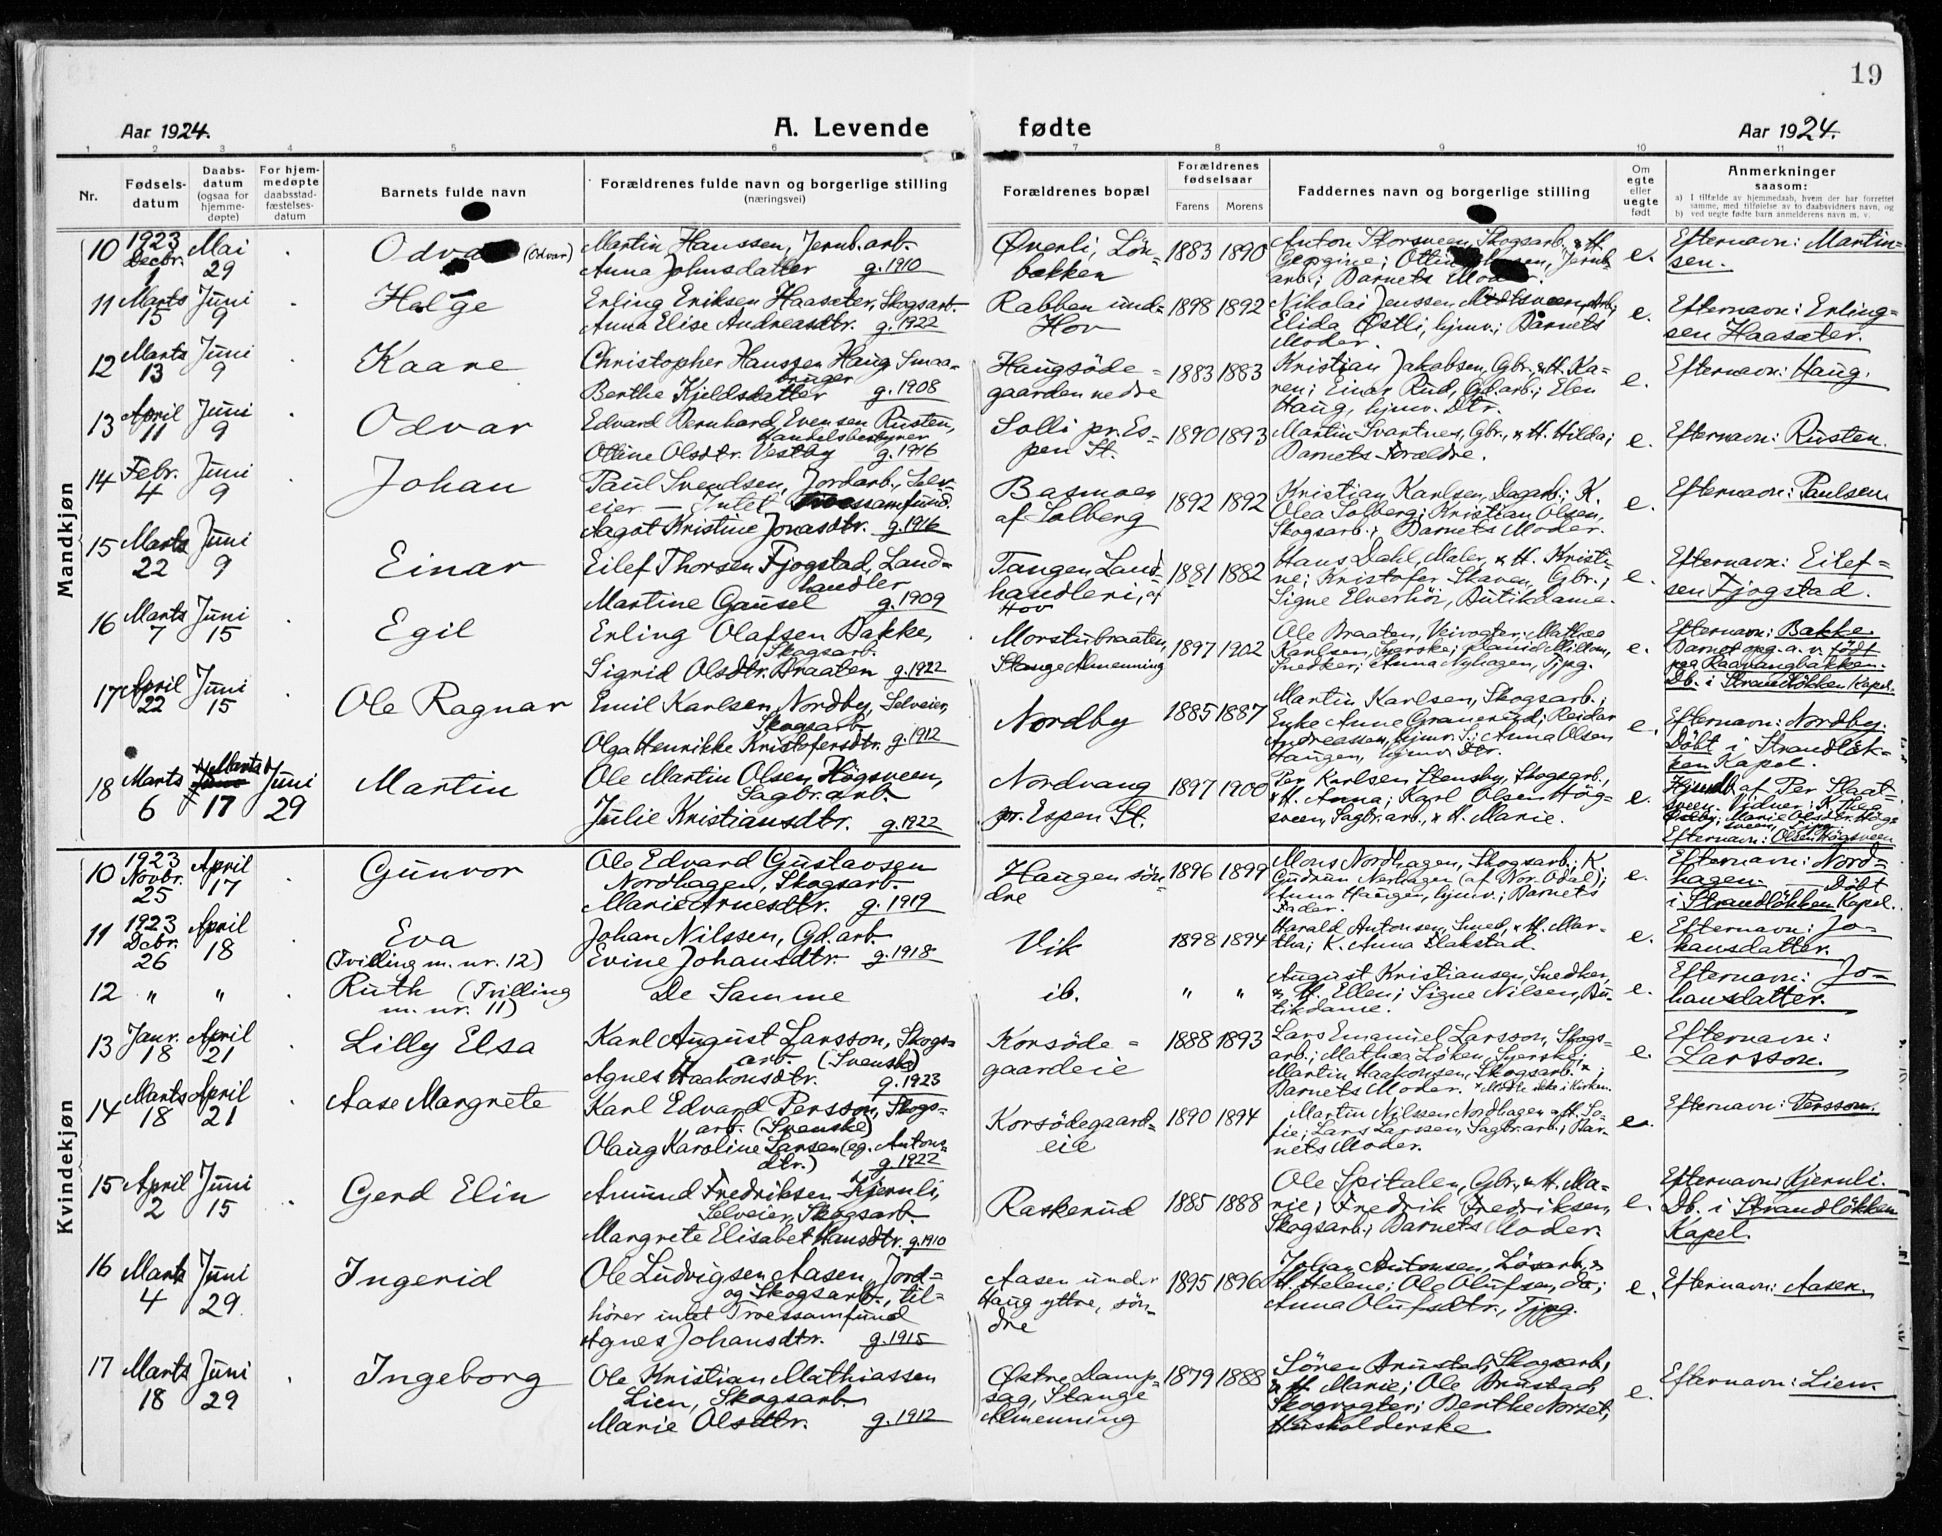 19
Aar 1924.
A. Levende fødte
Aar 1924.
1 2 3 4 5 6 7 8 9 10 11
Nr.
Fødsels-
datum
Daabs-
datum
(ogsaa for
hjemme-
døpte)
For hjem-
medøpte
daabsstad-
fæstelses-
datum
Barnets fulde navn
Forældrenes fulde navn og borgerlige stilling
(næringsvei)
Forældrenes bopæl
Forældrenes
fødselsaar
Farens Morens
Faddernes navn og borgerlige stilling
Om
egte
eller
uegte
født
Anmerkninger
saasom:
a) I tilfælde av hjemmedaab, hvem der har forrettet
samme, med tilføielse av to daabsvidners navn, og
b) ved uegte fødte barn anmelderens navn m. v.
Mandkjøn
10
1923
Decbr.
1
Mai
29
Odvar (Odvar)
Martin Hanssen, Jernb.arb.
Anna Johnsdatter g. 1910
Øverli, Løn-
bakken
1883 1890
Anton Storsveen, Skogsarb. & H.
Georgine; Jernb.
arb.; Barnets Moder.
e.
Efternavn: Martin-
sen.
11
Marts
15
Juni
9
Helge
Erling Eriksen Haasæter, Skogsarb.
Anna Elise Andreasdtr. g. 1922
Rabben und.
Hov
1898 1892
Nikolai Jenssen Arb.
Elida Østli, hjmv.; Barnets
Moder.
e.
Efternavn: Erling-
sen Haasæter.
12
Marts
13
Juni
9
Kaare
Christopher Hanssen Haug, Smaa-
bruger
Berthe Kjeldsdatter g. 1908
Haugsøde-
gaarden nedre
1883 1883
Kristian Jakobsen, Gbr., & H. Ka-
ren; Einar Rud, Gd.arb.; Elen
Haug, hjmv. Dtr.
e.
Efternavn: Haug.
13
April
11
Juni
9
Odvar
Edvard Bernhard Evensen Rusten,
Handelsbestyrer
Otline Olsdtr. Vestby g. 1916
Solli pr. Es-
pen St.
1890 1893
Martin Svartnes, Gbr., & H. Hilda;
Barnets Forældre.
e.
Efternavn: Rusten.
14
Febr.
4
Juni
9
Johan
Paul Svendsen, Jordarb., Selv-
eier — Intet Troessamfund.
Aagot Kristine Jonasdtr. g. 1916
Basmoen
af Solberg
1892 1892
Kristian Karlsen, Dagarb.; K.
Olea Solberg; Kristian Olsen,
Skogsarb.; Barnets Moder.
e.
Efternavn: Paulsen
15
Marts
22
Juni
9
Einar
Eilef Thorsen Fjogstad, Land-
handler
Martine Gausel g. 1909
Tangen Land-
handleri, af
Hov
1881 1882
Hans Dahl, Maler, & H. Kristi-
ne; Kristofer Skaven, Gbr.;
Signe Elverhöi, Butikdame.
e.
Efternavn: Eilef-
sen Fjogstad.
16
Marts
7
Juni
15
Egil
Erling Olafsen Bakke,
Skogsarb.
Sigrid Olsdtr. Braaten g. 1922
Morstubraaten,
Stange Almenning
1897 1902
Ole Braaten, Veivogter; Mathea
Karlsen, Syerske;
Snedker; Anna Nyhagen, Tjpg.
e.
Efternavn: Bakke.
Barnet opg. a. v. født
paa Raavangbakken.
Db. i Strandløkken Kapel.
17
April
22
Juni
15
Ole Ragnar
Emil Karlsen Nordby, Selveier,
Skogsarb.
Olga Henrikke Kristofersdtr. g. 1912
Nordby
1885 1887
Martin Karlsen, Skogsarb.;
Enke Anne Granerud; Reidar
Andreassen, hjmv. S.; Anna Olsen
Haugen, hjmv. Dtr.
e.
Efternavn: Nordby.
Døbt i Strandløk-
ken Kapel.
18
Marts
6
Marts
17
Juni
29
Martin
Ole Martin Olsen Högsveen,
Sagbr.arb.
Julie Kristiansdtr. g. 1922
Nordvang
pr. Espen St.
1897 1900
Per Karlsen Stensby, Skogsarb.,
& H. Anna; Karl Olsen Hög-
sveen, Sagbr.arb., & H. Marie.
e.
Hjmdb. af Per Slaat-
sveen. Vidner: K. Thea
Marie Olsdtr. Högs-
sveen.
Efternavn: Olsen Högsveen
Kvindekjøn
10
1923
Novbr.
25
April
17
Gunvor
Ole Edvard Gustavsen
Nordhagen, Skogsarb.
Marie Arnesdtr. g. 1919
Haugen søn-
dre
1896 1899
Mons Nordhagen, Skogsarb.; K.
Gudrun Nerhagen (af Nor. Odal);
Anna Haugen, hjmv.; Barnets
Fader.
e.
Efternavn: Nord-
hagen. Døbt
i Strandløkken Kapel.
11
1923
Decbr.
26
April
18
Eva
(Tvilling m. nr. 12)
Johan Nilssen, Gd.arb.
Evine Johansdtr. g. 1918
Vik
1898 1894
Harald Antonsen, Smed, & H. Mar-
tha; K. Anna Flakstad.
e.
Efternavn: Jo-
hansdatter.
12 " "
Ruth (Tvilling
m. nr. 11)
De Samme
ib.
" "
August Kristiansen, Snedker,
& H. Ellen; Signe Nilsen, Bu-
tikdame.
e.
Efternavn: Jo-
hansdatter.
13
Janr.
18
April
21
Lilly Elsa
Karl August Larsson, Skogs-
arb. (Svenske)
Agnes Haakonsdtr. g. 1923
Korsøde-
gaardeie
1888 1893
Lars Emanuel Larsson, Skogs-
arb.; Mathea Løken, Syerske;
Martin Haakonsen, Skogsarb. x;
Barnets Moder. x Mødte ikke i Kirken.
e.
Efternavn:
Larsson.
14
Marts
18
April
21
Aase Margrete
Karl Edvard Persson, Skogs-
arb. (Svenske)
Olaug Karoline Larsen (eg. Antons-
dtr.) g. 1922
Korsødegaard-
eie
1890 1894
Martin Nilssen Nordhagen & H. So-
fie; Lars Larssen, Sagbr.arb.; Bar-
nets Moder.
e.
Efternavn: Persson.
15
April
2
Juni
15
Gerd Elin
Amund Fredriksen Kjernli,
Selveier, Skogsarb.
Margrete Elisabet Hansdtr. g. 1910
Raskerud
1885 1888
Ole Spitalen, Gbr., & H. Ma-
rie; Fredrik Fredriksen,
Skogsarb.; Barnets Moder.
e.
Efternavn: Kjernli.
Db. i Strandløkken
Kapel.
16
Marts
4
Juni
29
Ingerid
Ole Ludvigsen Aasen, Jord-
og Skogsarb., til-
hører intet Troessamfund
Agnes Johansdtr. g. 1915
Aasen under
Haug yttre, søn-
dre
1895 1896
Johan Antonsen, Løsarb., &
H. Helene; Ole Olufsen, do;
Anna Olufsdtr., Tjpg.
e.
Efternavn: Aasen.
17
Marts
18
Juni
29
Ingeborg
Ole Kristian Mathiassen
Lien, Skogsarb.
Marie Olsdtr. g. 1912
Østre Damp-
sag, Stange
Almenning
1879 1888
Søren Brustad, Skogsarb.,
& H. Marie; Ole Brustad,
Skogvogter; Berthe Norset,
Husholderske.
e.
Efternavn: Lien.